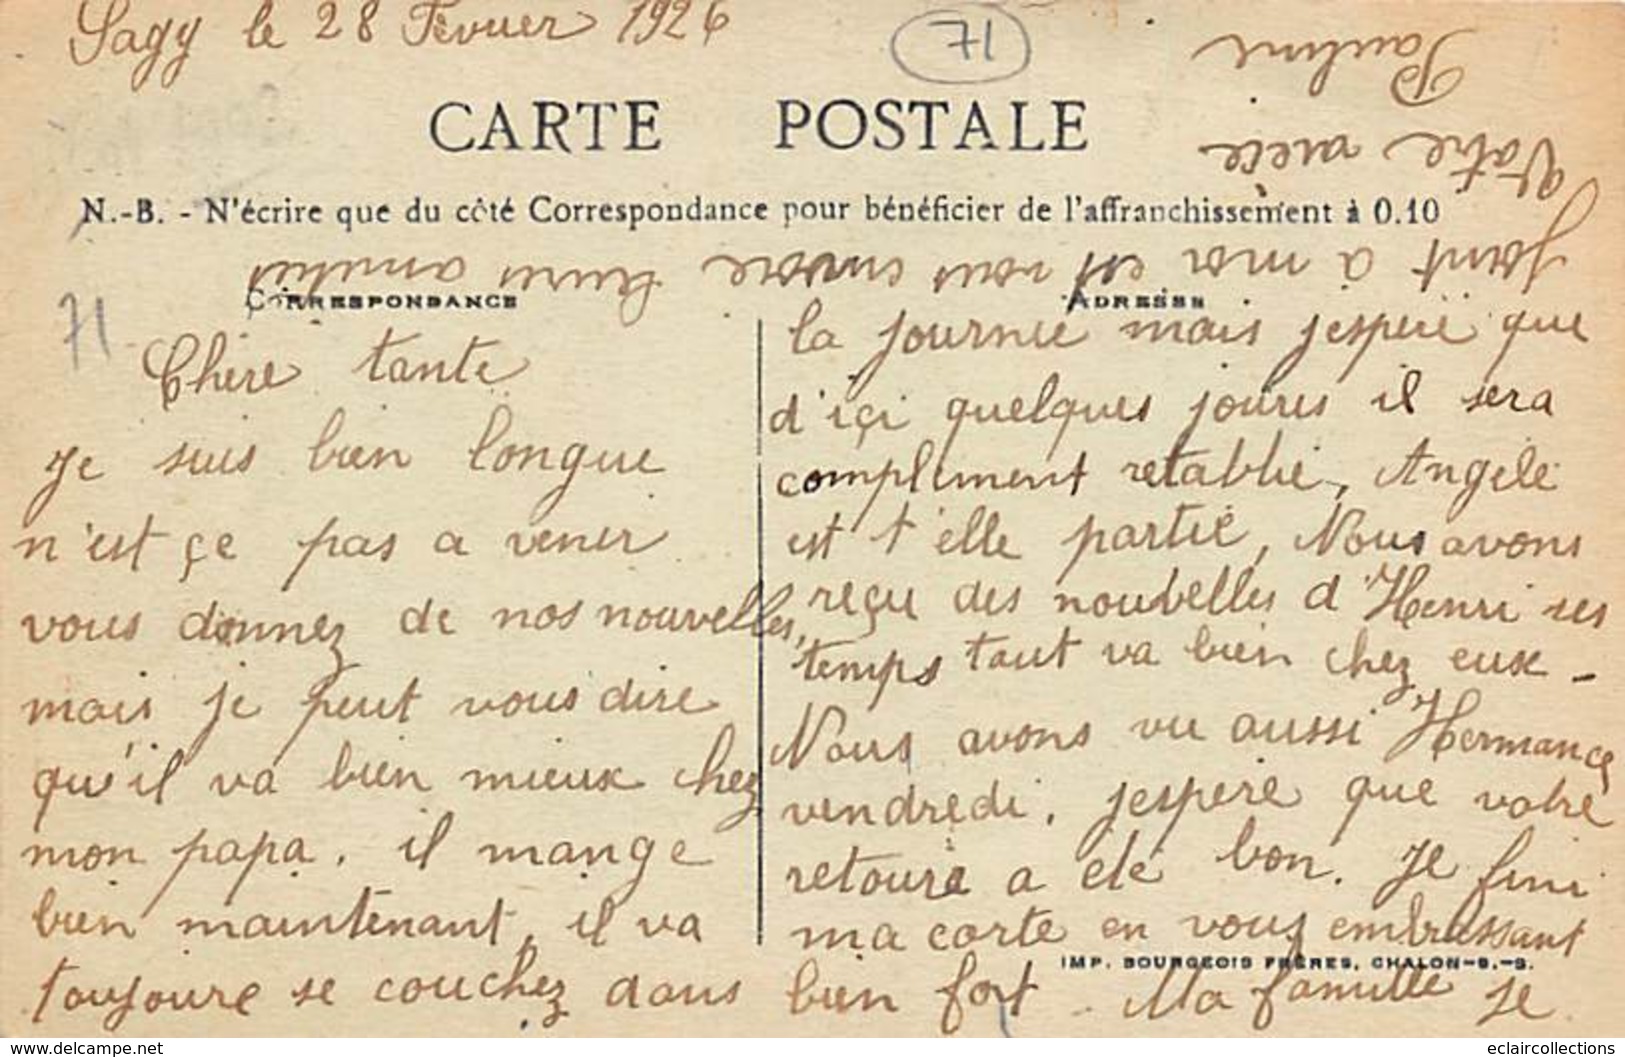 Sagy le 28 Fevrier 1926
71
CARTE POSTALE
N.-B. - N'écrire que du côté Correspondance pour bénéficier de l'affranchissement à 0.10
CORRESPONDANCE
ADRESSE
71
Chère tante
Je suis bien longue
n'est çe pas a venir
vous donnez de nos nouvelles,
mais je peut vous dire
qu'il va bien mieux chez
mon papa. il mange
bien maintenant, il va
toujoure se couchez dans
la journee mais j'espere que
d'içi quelques joures il sera
compliment retablie, Angele
est t'elle partie, Nous avons
reçu des nouvelles d'Henri ses
temps tout va bien chez eux -
Nous avons vu aussi Hermance
vendredi. j'espere que votre
retoure a eté bon. Je fini
ma carte en vous embrassant
bien fort. Ma famille se
IMP. BOURGEOIS FRÈRES, CHALON-S.-S.
joint a moi est vous envoie leurs amities
Votre niece
Pauline
www.delcampe.net
eclaircollections